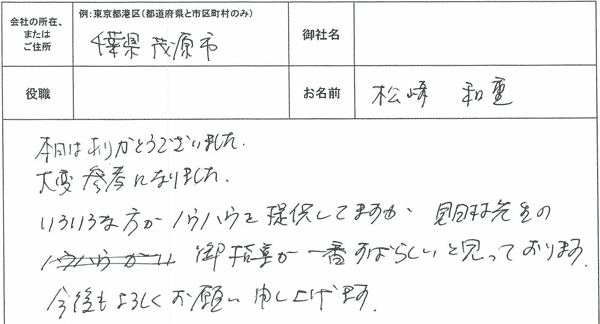 会社の所在、
または
ご住所
例：東京都港区（都道府県と市区町村のみ）
千葉県 茂原市
御社名
役職
お名前
松崎 和重
本日はありがとうございました.
大変 参考になりました.
いろいろな方がノウハウを提供してますが、見田村先生の
ノウハウがい 御指導が一番すばらしいと思っております.
今後もよろしくお願い申し上げます.